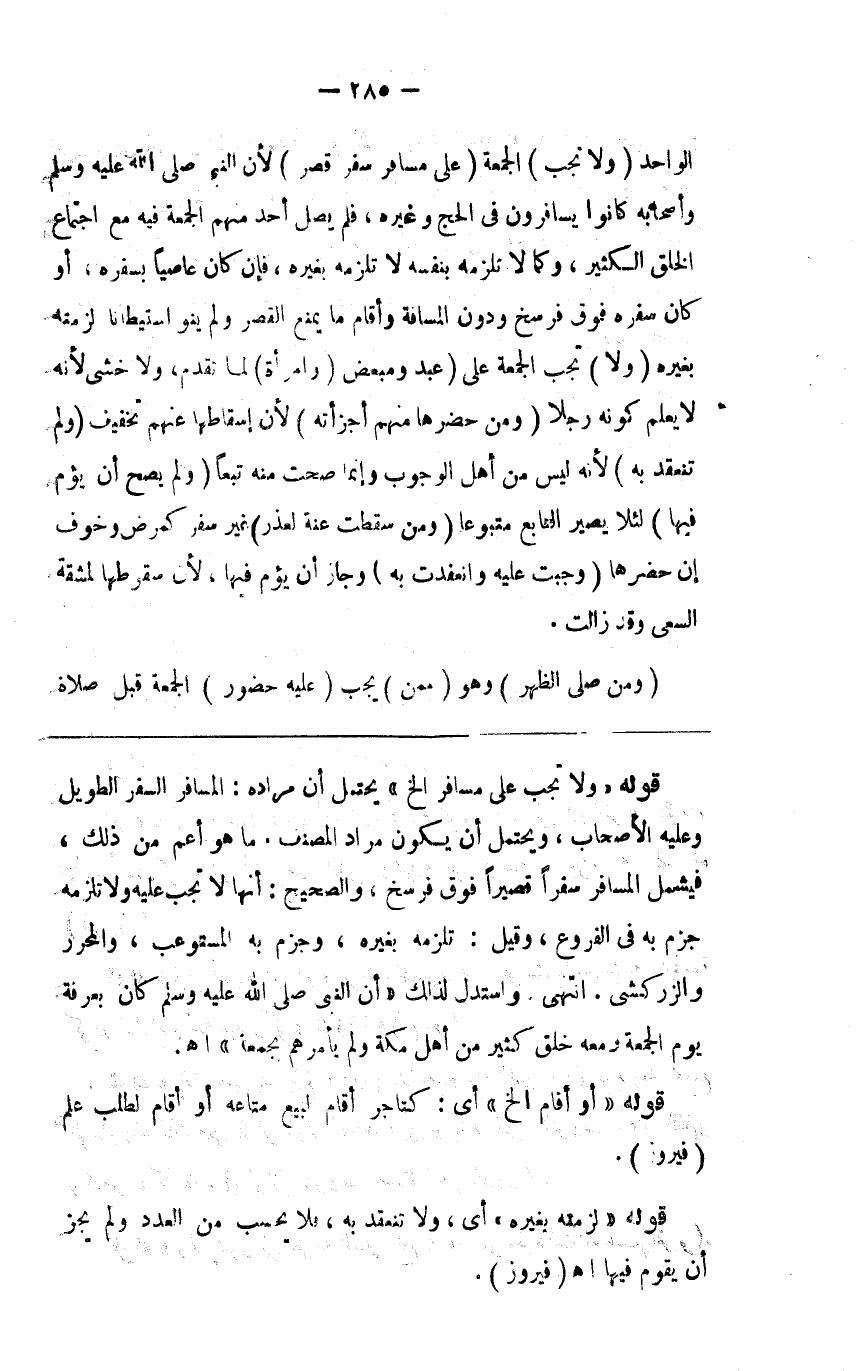 — ٢٨٥ —
الواحد ( ولا تجب ) الجمعة ( على مسافر سفر قصر ) لأن النبي صلى الله عليه وسلم
وأصحابه كانوا يسافرون فى الحج وغيره ، فلم يصل أحد منهم الجمعة فيه مع اجتماع
الخلق الكثير ، وكما لا تلزمه بنفسه لا تلزمه بغيره ، فإن كان عاصياً بسفره ، أو
كان سفره فوق فرسخ ودون المسافة وأقام ما يمنع القصر ولم ينو استيطانا لزمته
بغيره ( ولا ) تجب الجمعة على ( عبد ومبعض ( وامرأة ) لما تقدم، ولا خشى لأنه
لا يعلم كونه رجلا ( ومن حضرها منهم أجزأته ) لأن إسقاطها عنهم تخفيف ( ولم
تنعقد به ) لأنه ليس من أهل الوجوب وإنما صحت منه تبعاً ( ولم يصح أن يؤم
فيها ) لئلا يصير التابع متبوعا ( ومن سقطت عنه لعذر ) غير سفر كمرض وخوف
إن حضرها ( وجبت عليه وانعقدت به ) وجاز أن يؤم فيها ، لأن سقوطها لمشقة
السعى وقد زالت .
( ومن صلى الظهر ) وهو ( ممن ) يجب ( عليه حضور ) الجمعة قبل صلاة
قوله « ولا تجب على مسافر الخ » يحتمل أن مراده : المسافر السفر الطويل
وعليه الأصحاب ، ويحتمل أن يكون مراد المصنف . ما هو أعم من ذلك ،
فيشمل المسافر سفراً قصيراً فوق فرسخ ، والصحيح : أنها لا تجب عليه ولا تلزمه
جزم به فى الفروع ، وقيل : تلزمه بغيره ، وجزم به المستوعب ، والمحرر
والزركشى . انتهى . واستدل لذلك « أن النبى صلى الله عليه وسلم كان بعرفة
يوم الجمعة ومعه خلق كثير من أهل مكة ولم يأمرهم بجمعة » اه.
قوله « أو أقام الخ » أى : كتاجر أقام لبيع متاعه أو أقام لطلب علم
( فيروز ) .
قوله « لزمته بغيره » أى ، ولا تنعقد به ، فلا يحسب من العدد ولم يجز
أن يقوم فيها اه ( فيروز ) .